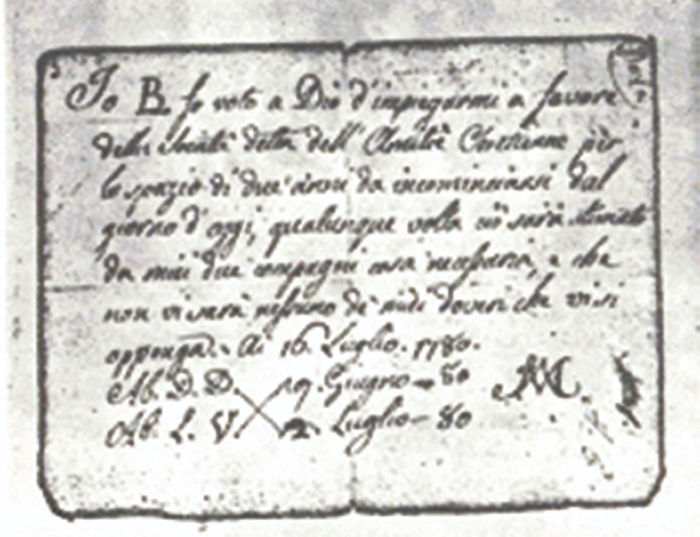 Io B. fo voto a Dio d'impiegarmi a favore
della Società detta dell' Amicizia Cristiana per
lo spazio di due anni da incominciarsi dal
giorno d'oggi, qualunque volta ciò sarà stimato
da miei due compagni cosa necessaria, e che
non vi sarà nessuno de' miei doveri che vi si
opponga. Ai 16. Luglio. 1780.
Ab. D. D. 19. Giugno - 80
Ab. L. V. 2. Luglio - 80